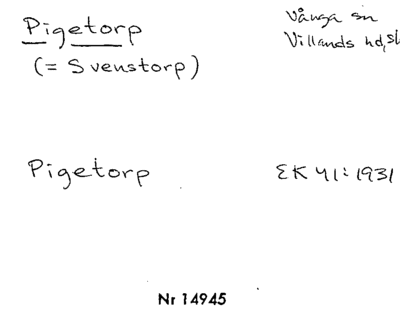 Pigetorp
(= Svenstorp)
Vånga sn
Villands hd, Sk
Pigetorp
EK 41:1931
Nr 14945